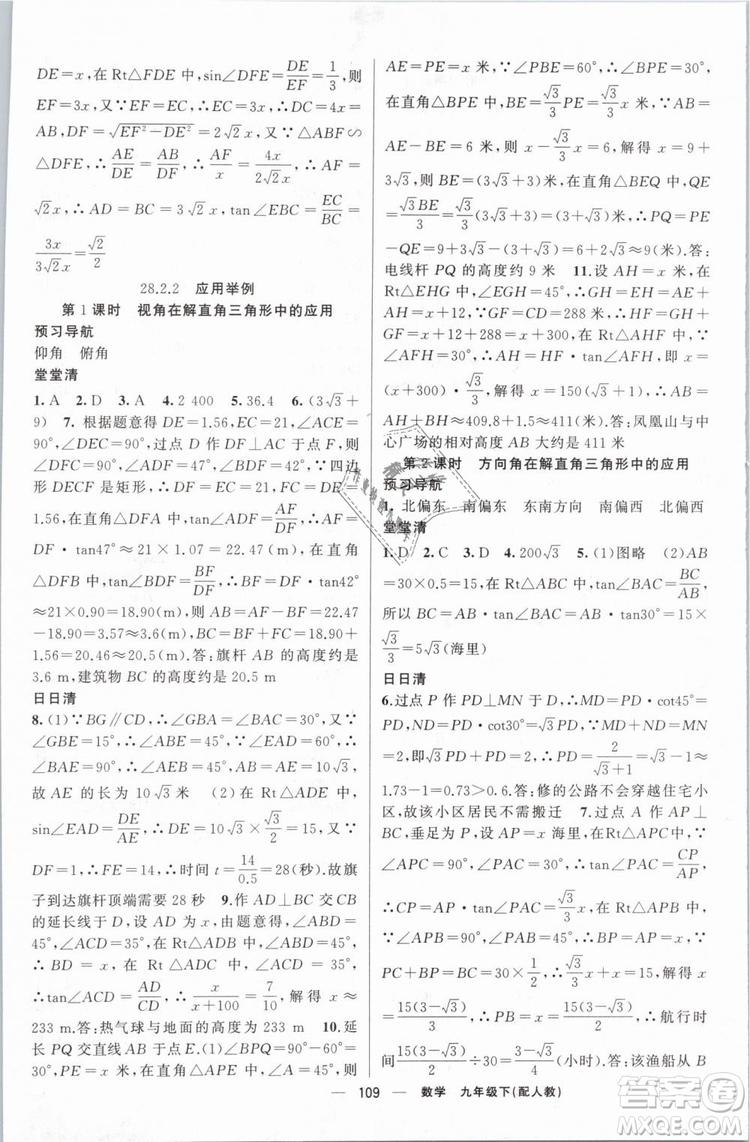 DE=x,在 Rt△FDE 中,sin∠DFE=DE/EF=1/3,则
EF=3x,又∵EF=EC,∴EC=3x,∴DC=4x=
AB,DF=√(EF²-DE²)=2√2x,又∵△ABF∽
△DFE,∴AE/DE=AB/DF,∴AF/x=4x/(2√2x),∴AF=
√2x,∴AD=BC=3√2x,tan∠EBC=EC/BC=
3x/(3√2x)=√2/2
28.2.2 应用举例
第1课时 视角在解直角三角形中的应用
预习导航
仰角 俯角
堂堂清
1. A 2. D 3. A 4. 2 400 5. 36.4 6. (3√3+
9) 7. 根据题意得 DE=1.56,EC=21,∠ACE=
90°,∠DEC=90°,过点 D 作 DF⊥AC 于点 F,则
∠DFC=90°,∠ADF=47°,∠BDF=42°,∵四边
形 DECF 是矩形,∴DF=EC=21,FC=DE=
1.56,在直角△DFA 中,tan∠ADF=AF/DF,∴AF=
DF·tan47°≈21×1.07=22.47(m).在直角
△DFB 中,tan∠BDF=BF/DF,∴BF=DF·tan42°
≈21×0.90=18.90(m),则 AB=AF-BF=22.47
-18.90=3.57≈3.6(m),BC=BF+FC=18.90+
1.56=20.46≈20.5(m).答:旗杆 AB 的高度约是
3.6 m,建筑物 BC 的高度约是 20.5 m
日日清
8. (1)∵BG∥CD,∴∠GBA=∠BAC=30°,又∵
∠GBE=15°,∴∠ABE=45°,∵∠EAD=60°,∴
∠BAE=90°,∴∠AEB=45°,∴AB=AE=10√3,
故 AE 的长为 10√3 米 (2)在 Rt△ADE 中,
sin∠EAD=DE/AE
∵DF=1,∴FE=14,∴时间 t=14/0.5=28(秒).故旗
子到达旗杆顶端需要 28 秒 9. 作 AD⊥BC 交 CB
的延长线于 D,设 AD 为 x,由题意得,∠ABD=
45°,∠ACD=35°,在 Rt△ADB 中,∠ABD=45°,
∴tan∠ACD=AD/CD,∴x/(x+100)=7/10,解得 x≈
233 m.答:热气球与地面的高度为 233 m 10. 延
长 PQ 交直线 AB 于点 E,(1)∠BPQ=90°-60°=
AE=PE=x 米,∵∠PBE=60°,∴∠BPE=30°,
在直角△BPE 中,BE=√3/3 PE=√3/3 x 米,∵AB=
AE-BE=6 米,则 x-√3/3 x=6,解得 x=9+
3√3,则 BE=(3√3+3)米,在直角△BEQ 中,QE
=√3/3 BE=√3/3(3√3+3)=(3+√3)米,∴PQ=PE
-QE=9+3√3-(3+√3)=6+2√3≈9(米).答:
电线杆 PQ 的高度约 9 米 11. 设 AH=x 米,在
Rt△EHG 中,∵∠GEH=45°,∴GH=EH=AE
+AH=x+12,∵GF=CD=288,∴HF=GH+
GF=x+12+288=x+300,在 Rt△AHF 中,
∵∠AFH=30°,∴AH=HF·tan∠AFH,即 x=
(x+300)·√3/3,解得 x=150(√3+1),∴AB=
AH+BH≈409.8+1.5≈411(米).答:凤凰山与中
心广场的相对高度 AB 大约是 411 米
第2课时 方向角在解直角三角形中的应用
预习导航
1. 北偏东 南偏东 东南方向 南偏西 北偏西
堂堂清
1. D 2. C 3. D 4. 200√3 5. (1)图略 (2)AB
=30×0.5=15,在 Rt△ABC 中,tan∠BAC=BC/AB,
所以 BC=AB·tan∠BAC=AB·tan30°=15×
√3/3=5√3(海里)
日日清
6. 过点 P 作 PD⊥MN 于 D,∴MD=PD·cot45°=
PD,ND=PD·cot30°=√3PD,∵MD+ND=MN
=2,即√3PD+PD=2,∴PD=2/(√3+1)=√3-1≈
1.73-1=0.73>0.5.答:修的公路不会穿越住宅小
区,故该小区居民不需搬迁 7. 过点 A 作 AP⊥
BC,垂足为 P,设 AP=x 海里.在 Rt△APC 中,
∵∠APC=90°,∠PAC=30°,∴tan∠PAC=CP/AP,
∴CP=AP·tan∠PAC=√3/3 x.在 Rt△APB 中,
∵∠APB=90°,∠PAB=45°,∴BP=AP=x,∵
PC+BP=BC=30×1/2,∴√3/3 x+x=15,解得 x
=15(3-√3)/2,∴PB=x=15(3-√3)/2,∴航行时
(小时).答:该渔船从 B
109 数学 九年级下(配人教)